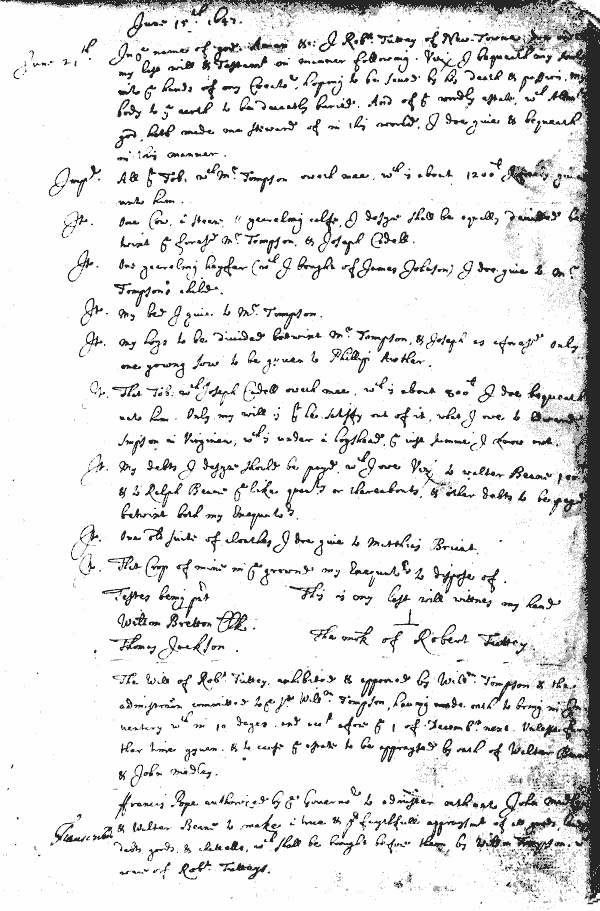 June 15th 1647.
June 21th. In ye name of god. Amen &c: I Robt Tuttey of New Towne, doe
my last will & Testamt in manner following. Viz I bequeath my soule
into ye hands of my Creator, hoping to be saved by his death & passion, my
body to ye earth to be decently buried. And of ye worldly estate, wch Almi:
god, hath made me steward of in this world, I doe give & bequeath
in this manner.
Impr. All ye Tob. wch Mr Tompson oweth mee, wch is about 1200 l I give
unto him.
It. One Cow, a steere yearling calfe, I desyre shall be equally devided bet
twixt ye foresd Mr Tompson, & Joseph Cadell.
It. One yearling hayfar (wch I bought of James Johnson) I doe give to Mr
Tompsons child.
It. My bed I give to Mr Tompson.
It. My hogs to be divided betwixt Mr Tompson, & Joseph as aforesd only
one young sow to be given to Phillip
It. That Tob. wch Joseph Cadell oweth mee, wch is about 800 l I doe bequeath
unto him. Only my will is ye he satisfy out of it, what I owe to Edward
Simpson in Virginia, wch is under a hogshead, ye just summe, I know not.
It. My debts I desyre should be payd, wch I owe Viz to Walter Beane 100
& to Ralph Beane ye like quant: or thereabouts, & other debts to be payd
betwixt both my Exequutrs.
It. One ould suite of cloathes, I doe give to Matthias Briant.
It. That Crop of mine in ye ground my Exequutrs to dispose of.
Testes being pst This is my last will wittnes my hand
Willm Bretton Clk.
Thomas Jackson. The mrk of Robert Tuttey.
The Will of Robt Tuttey, exhibited & approved by Willm Tompson & the
administraon committed to ye sd Willm Tompson, having made oath to bring in
wch in 10 dayes, and acct afore ye 1 of Decembr next. Unlesse
ther time given. & to cause ye estate to be appraysed by oath of Walter Beane
& John Medley.
ffrancis Pope authorized by ye Governor to administer oath unto John Medley
& Walter Beane to make a true & faythfull appraysmt of all goods,
goods, & chattells, wch shall be brought before them, by Willm Tompson, wch
were of Robt Tutteys.